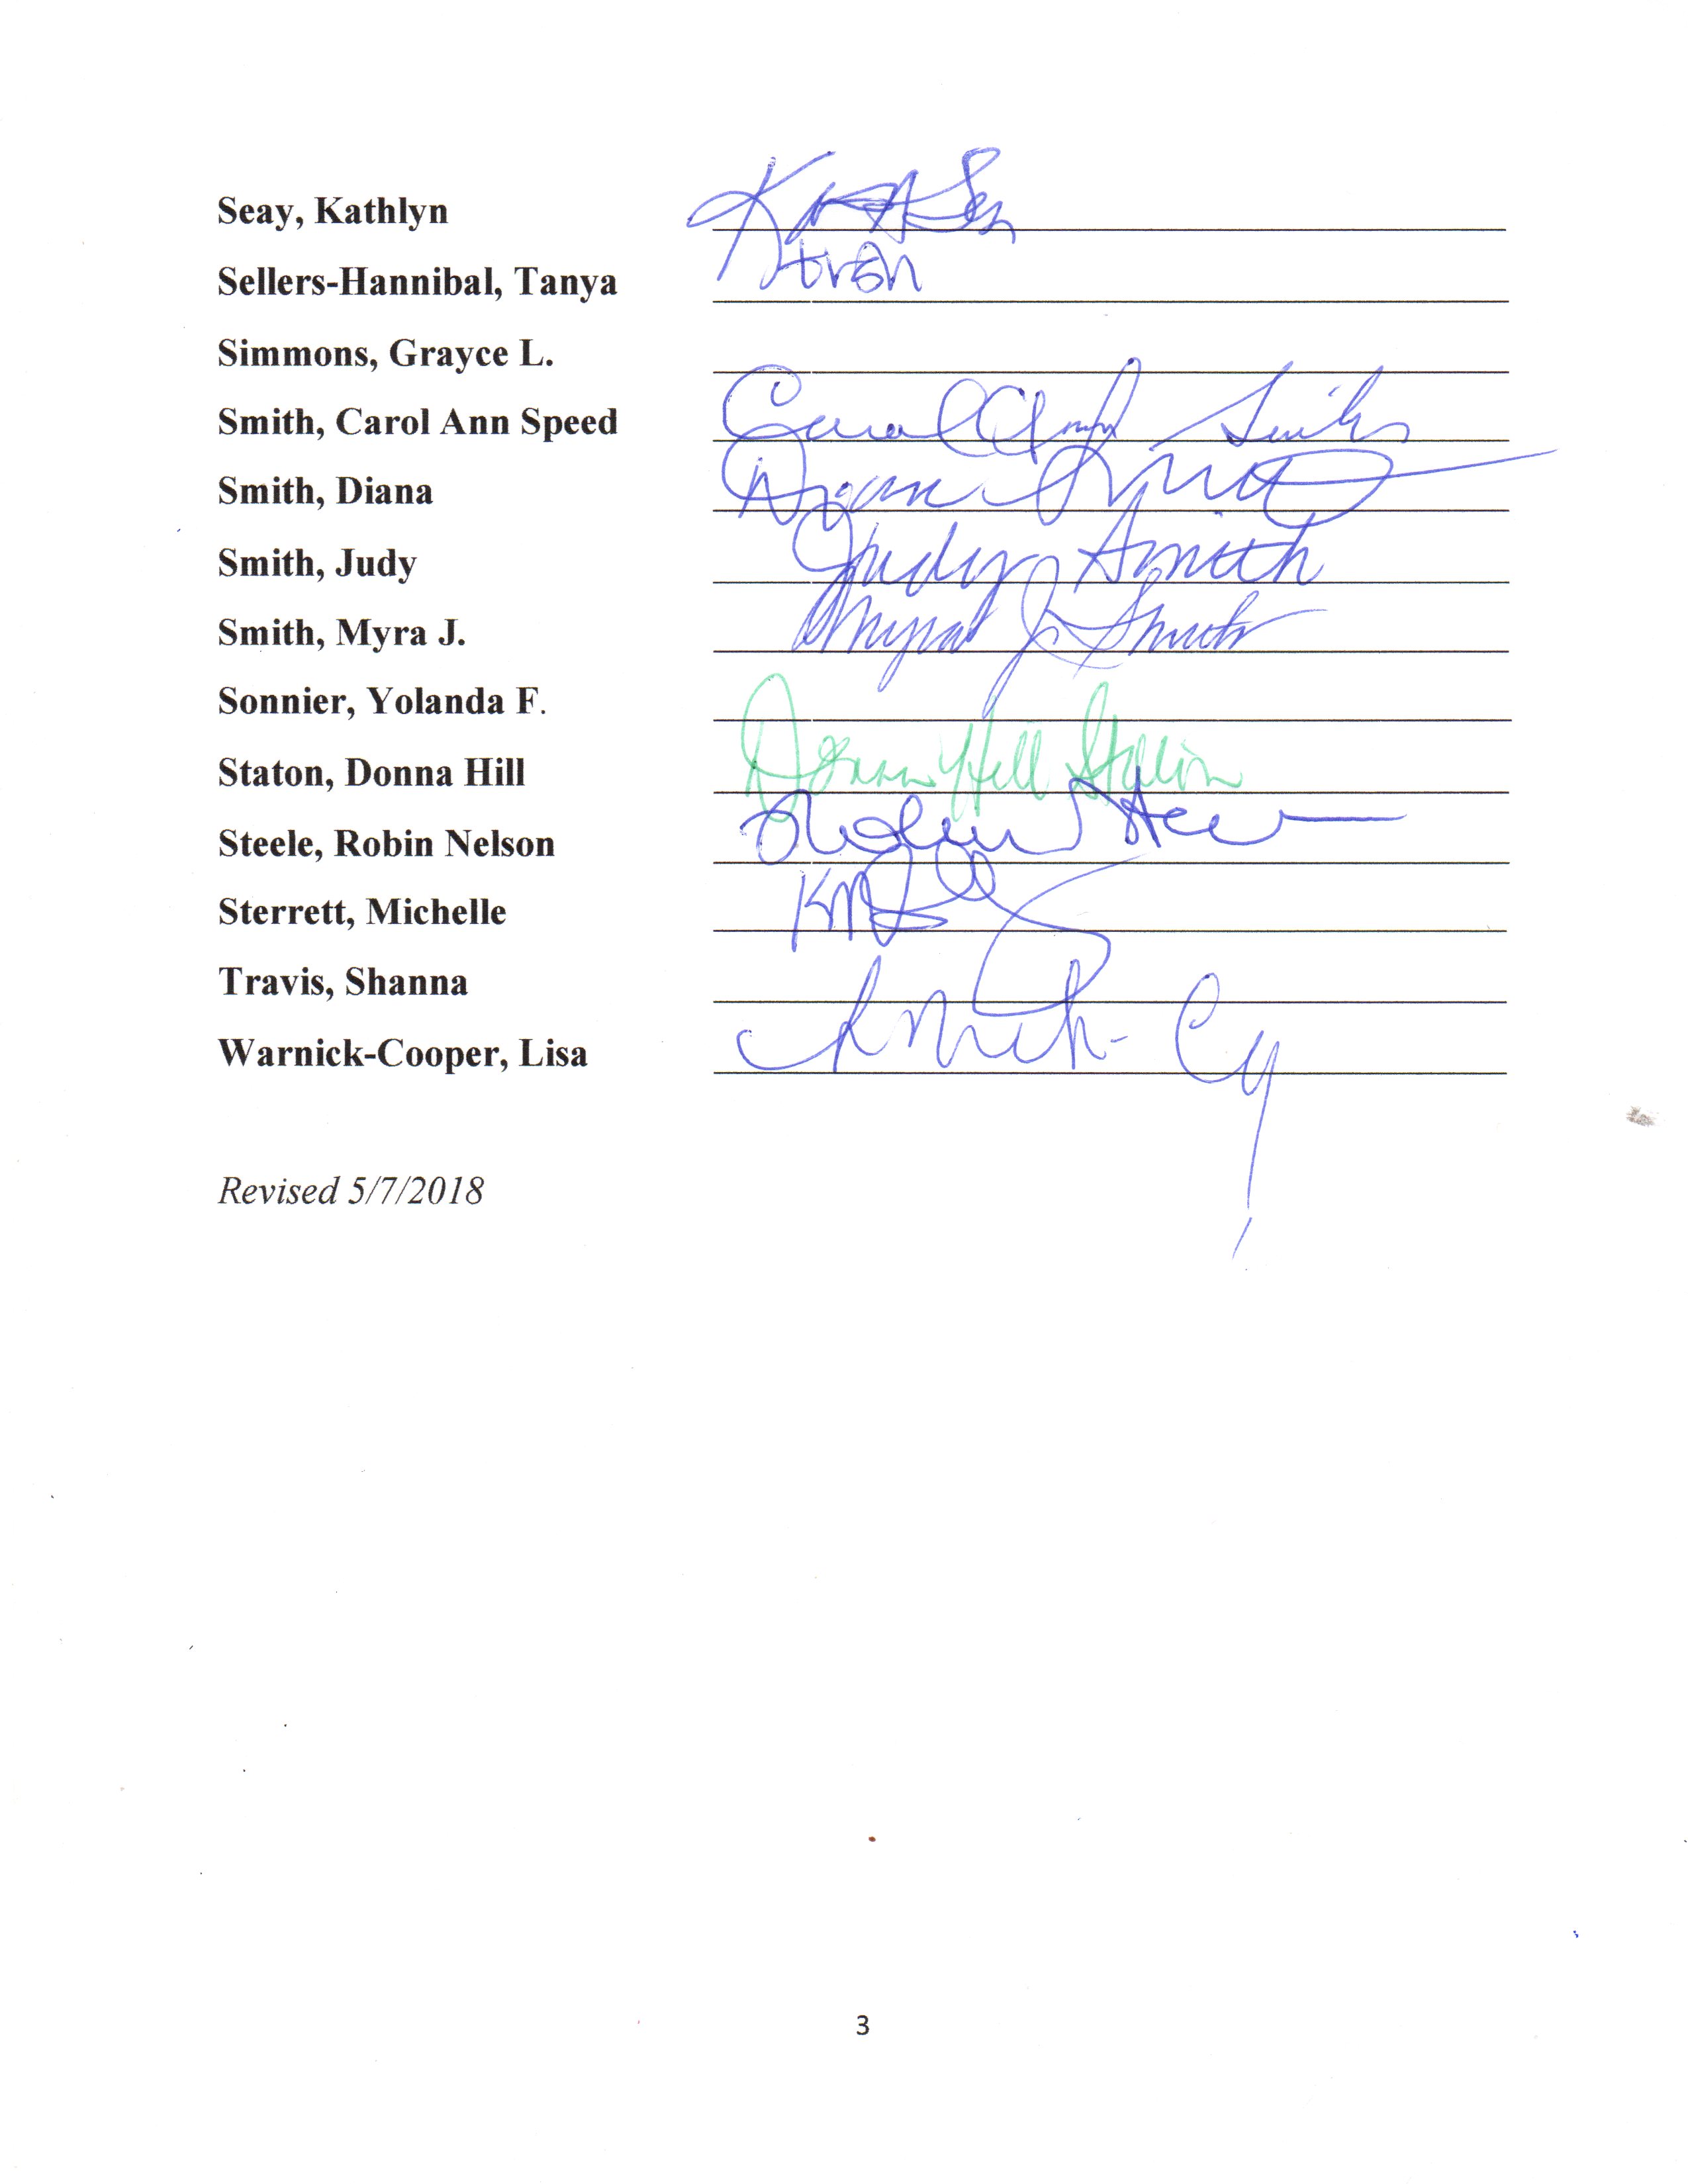 Seay, Kathlyn
Sellers-Hannibal, Tanya
Simmons, Grayce L.
Smith, Carol Ann Speed Carol Ann Smith
Smith, Diana
Smith, Judy Judy Smith
Smith, Myra J. Myra J. Smith
Sonnier, Yolanda F.
Staton, Donna Hill Donna Hill Staton
Steele, Robin Nelson
Sterrett, Michelle
Travis, Shanna
Warnick-Cooper, Lisa
Revised 5/7/2018
3